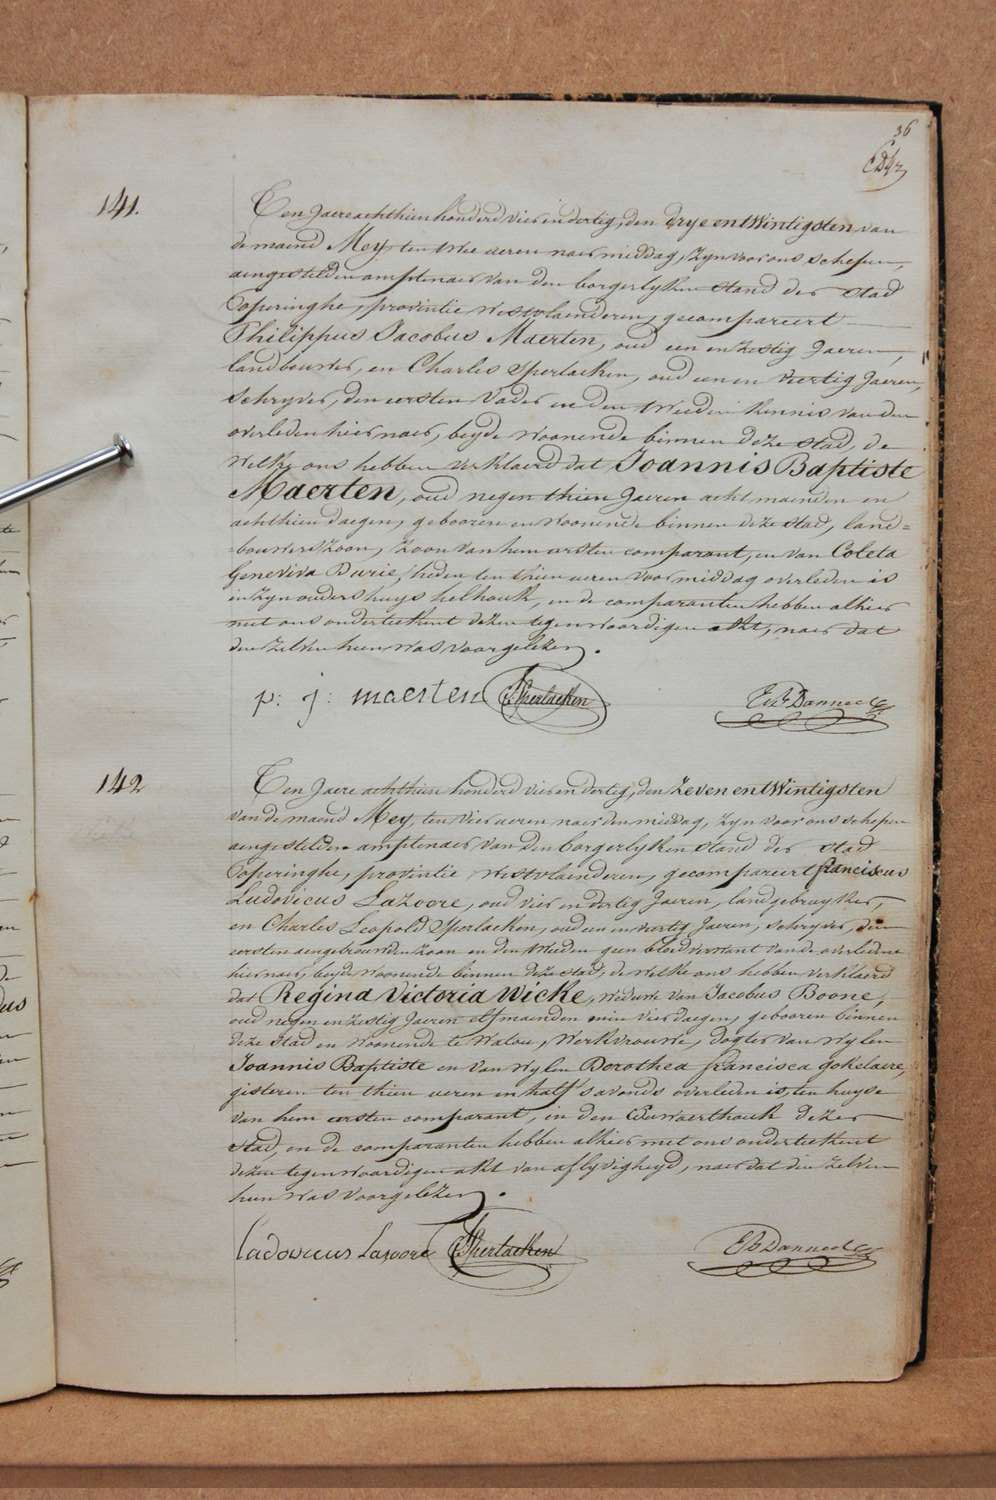 36
141.
Ten Jaere achthien honderd vier en dertig, den drye en twintigsten van
de maend Mey, ten twee ueren naer middag, zyn voor ons schepen,
aengestelden amptenaer van den borgerlyken stand der stad
Poperinghe, provintie Westvlaenderen, gecompareert
Philippus Jacobus Maerten, oud een en zestig Jaeren,
landbouwer, en Charles Sperlaeken, oud een en veertig Jaeren,
Schryver, den eersten Vader en den tweeden kennis van den
overleden hier naer, beyde woonende binnen deze stad, de
welke ons hebben verklaerd dat Joannis Baptiste
Maerten, oud negen thien Jaeren acht maenden en
achthien daegen, gebooren en woonende binnen deze stad, land=
=bouwers zoon, zoon van hem eersten comparant, en van Coleta
Geneviva Durie, heden ten thien ueren voor middag overleden is
in zyn ouders huys helhouk, en de comparanten hebben alhier
met ons onderteekent dezen tegenwoordigen akt, naer dat
den zelven hun was voorgelezen.
p: j: maerten CSperlaeken
142
Ten Jaere achthien honderd vier en dertig, den zeven en twintigsten
van de maend Mey, ten vier ueren naer den middag, zyn voor ons schepen
aengestelden amptenaer van den borgerlyken stand der stad
Poperinghe, provintie Westvlaenderen, gecompareert franciscus
Ludovicus Lazoore, oud vier en dertig Jaeren, landgebruyker,
en Charles Leopold Sperlaeken, oud een en veertig Jaeren, schryver, den
eersten aengetrouwden zoon en den tweeden geen bloedverwant van de overledene
hier naer, beyde woonende binnen deze stad, de welke ons hebben verklaerd
dat Regina Victoria Wicke, weduwe van Jacobus Boone,
oud negen en zestig Jaeren elf maenden min vier daegen, gebooren binnen
deze stad en woonende te Watou, werkvrouwe, dogter van wylen
Joannis Baptiste en van wylen Dorothea francisca gokelaere,
gisteren ten thien ueren en half s'avonds overleden is, ten huyse
van hem eersten comparant, in den houk dezer
stad, en de comparanten hebben alhier met ons onderteekent
dezen tegenwoordigen akt van aflyvigheyd, naer dat den zelven
hun was voorgelezen.
Ludovicus Lazoore CSperlaeken